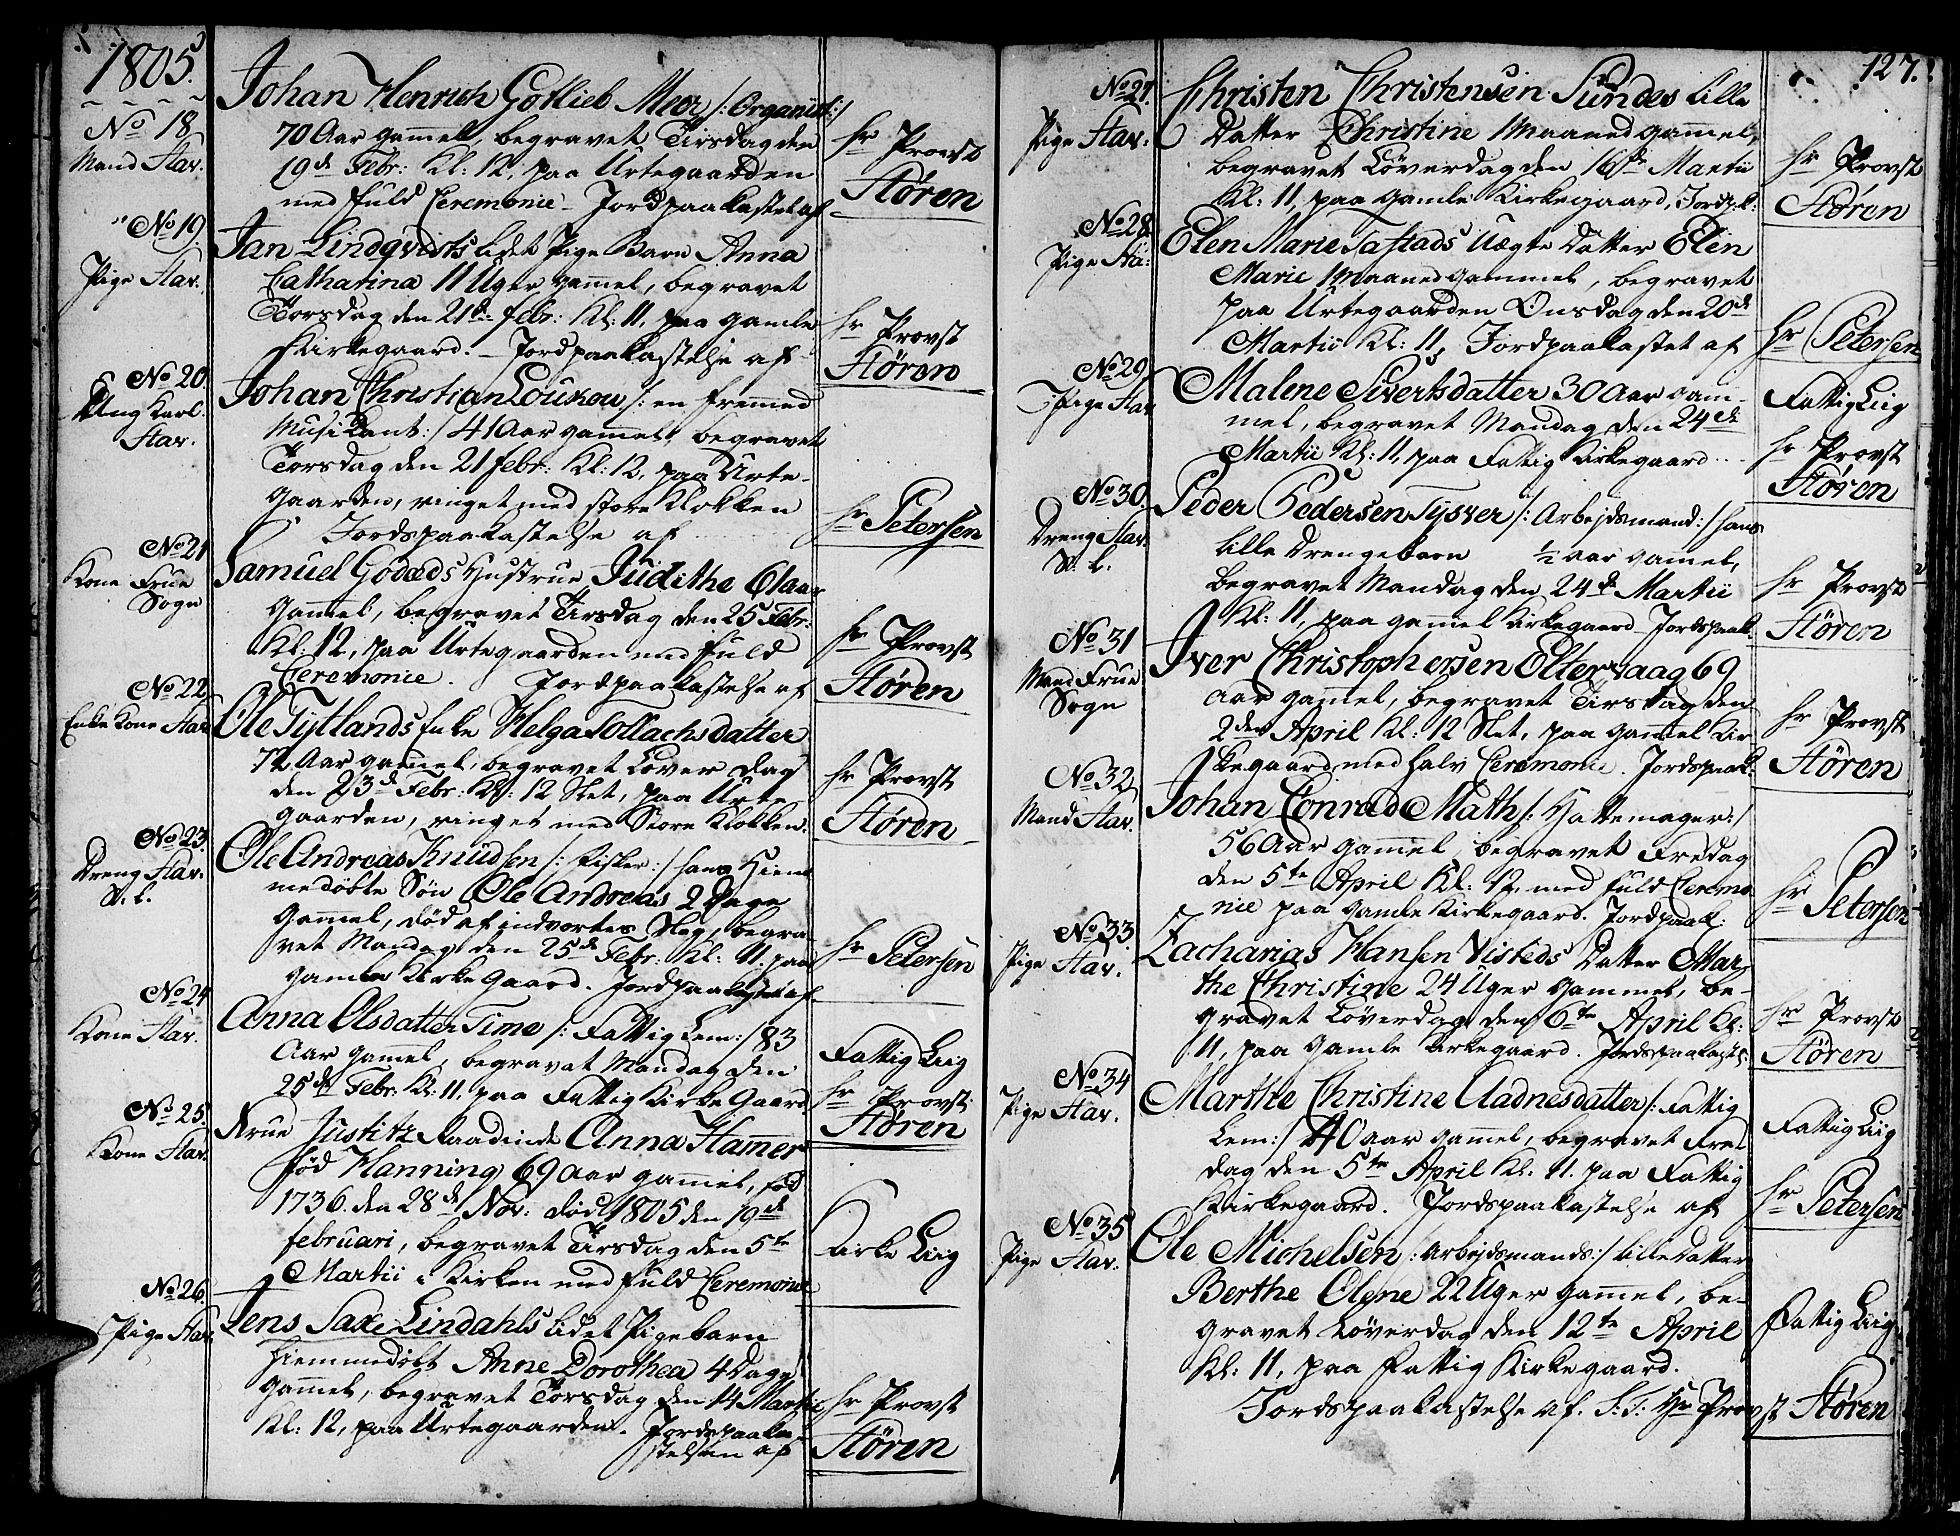 1805.
No 18
Mand Stav.
Johan Henrich Gotlieb Meer /: Organist :/
70 Aar gammel, begravet Tirsdag den
19de Febr: Kl: 12, paa Urtegaarden
med fuld Ceremonie - Jordpaakastet af
hr Provst
Støren
No 19
Pige Stav.
Jan Lindqvists lidet Pige Barn Anna
Catharina 11 Uger gammel, begravet
Torsdag den 21de febr: Kl: 11, paa gamle
Kirkegaard. - Jordpaakastelse af
hr Provst
Støren
No 20
Ung Karl.
Stav.
Johan Christian Loukou /: en fremmed
Musikant :/ 41 Aar gammel begravet
Torsdag den 21 febr: Kl: 12, paa Urte-
gaarden, ringet med store Klokken
Jordspaakastelse af
hr Petersen
No 21
Kone Frue
Sogn
Samuel Godæds Hustrue Judithe 61 aar
gammel, begravet Tirsdag den 25 Febr:
Kl: 12, paa Urtegaarden med fuld
Ceremonie. Jordpaakastelse af
hr Provst
Støren
No 22
Enke Kone Stav
Ole Tytlands Enke Helga Tollachsdatter
72 Aar gammel, begravet Løver dag
den 23de Febr: Kl: 12 Slet, paa Urte
gaarden, ringet med Store Klokken.
hr Provst
Støren
No 23
Dreng Stav.
S. L.
Ole Andreas Knudsen /: Fisker :/ hans Hiem
medøbte Søn Ole Andreas 2 Dage
gammel, død af indvortes Slag, begra-
vet Mandag den 25de Febr: Kl: 11. paa
gamle Kirke Gaard. Jordpaakastet af
hr Petersen
No 24
Kone Stav.
Anna Olsdatter Time /: Fattig Lem :/ 83
Aar gammel, begravet Mandag den
25de Febr: Kl: 11, paa Fattig Kirke Gaard
Fattig Liig
hr Provst
Støren
No 25.
Kone Stav.
Frue Justitz Raadinde Anna Hamer
fød Hanning 69 Aar gammel, fød
1736. den 28de Nov: død 1805 den 19de
februari, begravet Tirsdag den 5te
Martii i Kirken med fuld Ceremonie
Kirke Liig
No 26.
Pige Stav
Jens Saxe Lindahls lidet Pigebarn
hiemmedøbt Anne Dorothea 4 Dage
gammel, begravet Torsdag den 14 Martii
Kl: 12, paa Urtegaarden. Jordspaaka-
stelsen af
hr Provst
Støren
127.
No 27.
Pige Stav:
Christen Christensen Sundes lille
Datter Christine 1 Maaned gammel,
begravet Løverdag den 16de Martii
Kl: 11, paa gamle Kirkegaard, Jordp.k:
hr Provst
Støren
No 28
Pige Sta:
Elen Marie Tastads Uægte Datter Elen
Marie 1 Maaned gammel, begravet
paa Urtegaarden Onsdag den 20de
Martii Kl: 11, Jordpaakastet af
hr Petersen
No 29
Pige Stav
Malene Sivertsdatter 30 Aar gam-
mel, begravet Mandag den 24de
Martii Kl: 11, paa Fattig Kirkegaard
Fattig Liig
hr Provst
Støren
No 30
Dreng Stav.
S. L.
Peder Pedersen Tysver /: Arbejdsmand :/ hans
lille Drengebarn ½ aar gammel,
begravet Mandag den 24de Martii
Kl: 11, paa gammel Kirkegaard Jordspaak:
hr Provst
Støren
No 31
Mand Frue
Sogn
Iver Christophersen Eltervaag 69
Aar gammel, begravet Tirsdag den
2den April Kl: 12 Slet, paa gammel Kir
kegaard, med halv Ceremonie. Jordspaak:
hr Provst
Støren
No 32
Mand Stav.
Johan Conrad Math /: Hattemager :/
56 Aar gammel, begravet Fredag
den 5te April Kl: 12 med fuld Ceremo
nie paa gamle Kirkegaard. Jordpaak:
hr Petersen
No 33.
Pige Stav.
Zacharias Hansen Visteds Datter Mar-
the Christine 24 Uger gammel, be-
gravet Løverdag den 6te April Kl:
11, paa gamle Kirkegaard. Jordspaakasts:
hr Provst
Støren
No 34
Pige Stav.
Marthe Christine Aadnesdatter /: Fattig
Lem :/ 40 aar gammel, begravet Fre
dag den 5te April Kl: 11. paa Fattig
Kirkegaard. Jordspaakastelse af
Fattig Liig
hr Petersen
No 35
Pige Stav.
Ole Michelsen /: Arbejdsmands :/ lille Datter
Berthe Olene 22 Uger gammel, be-
gravet Løverdag den 12te April
Kl: 11, paa Fattig Kirkegaard.
Jordspaakastelse af. S. T. Hr Provst Støren
Fattig Liig